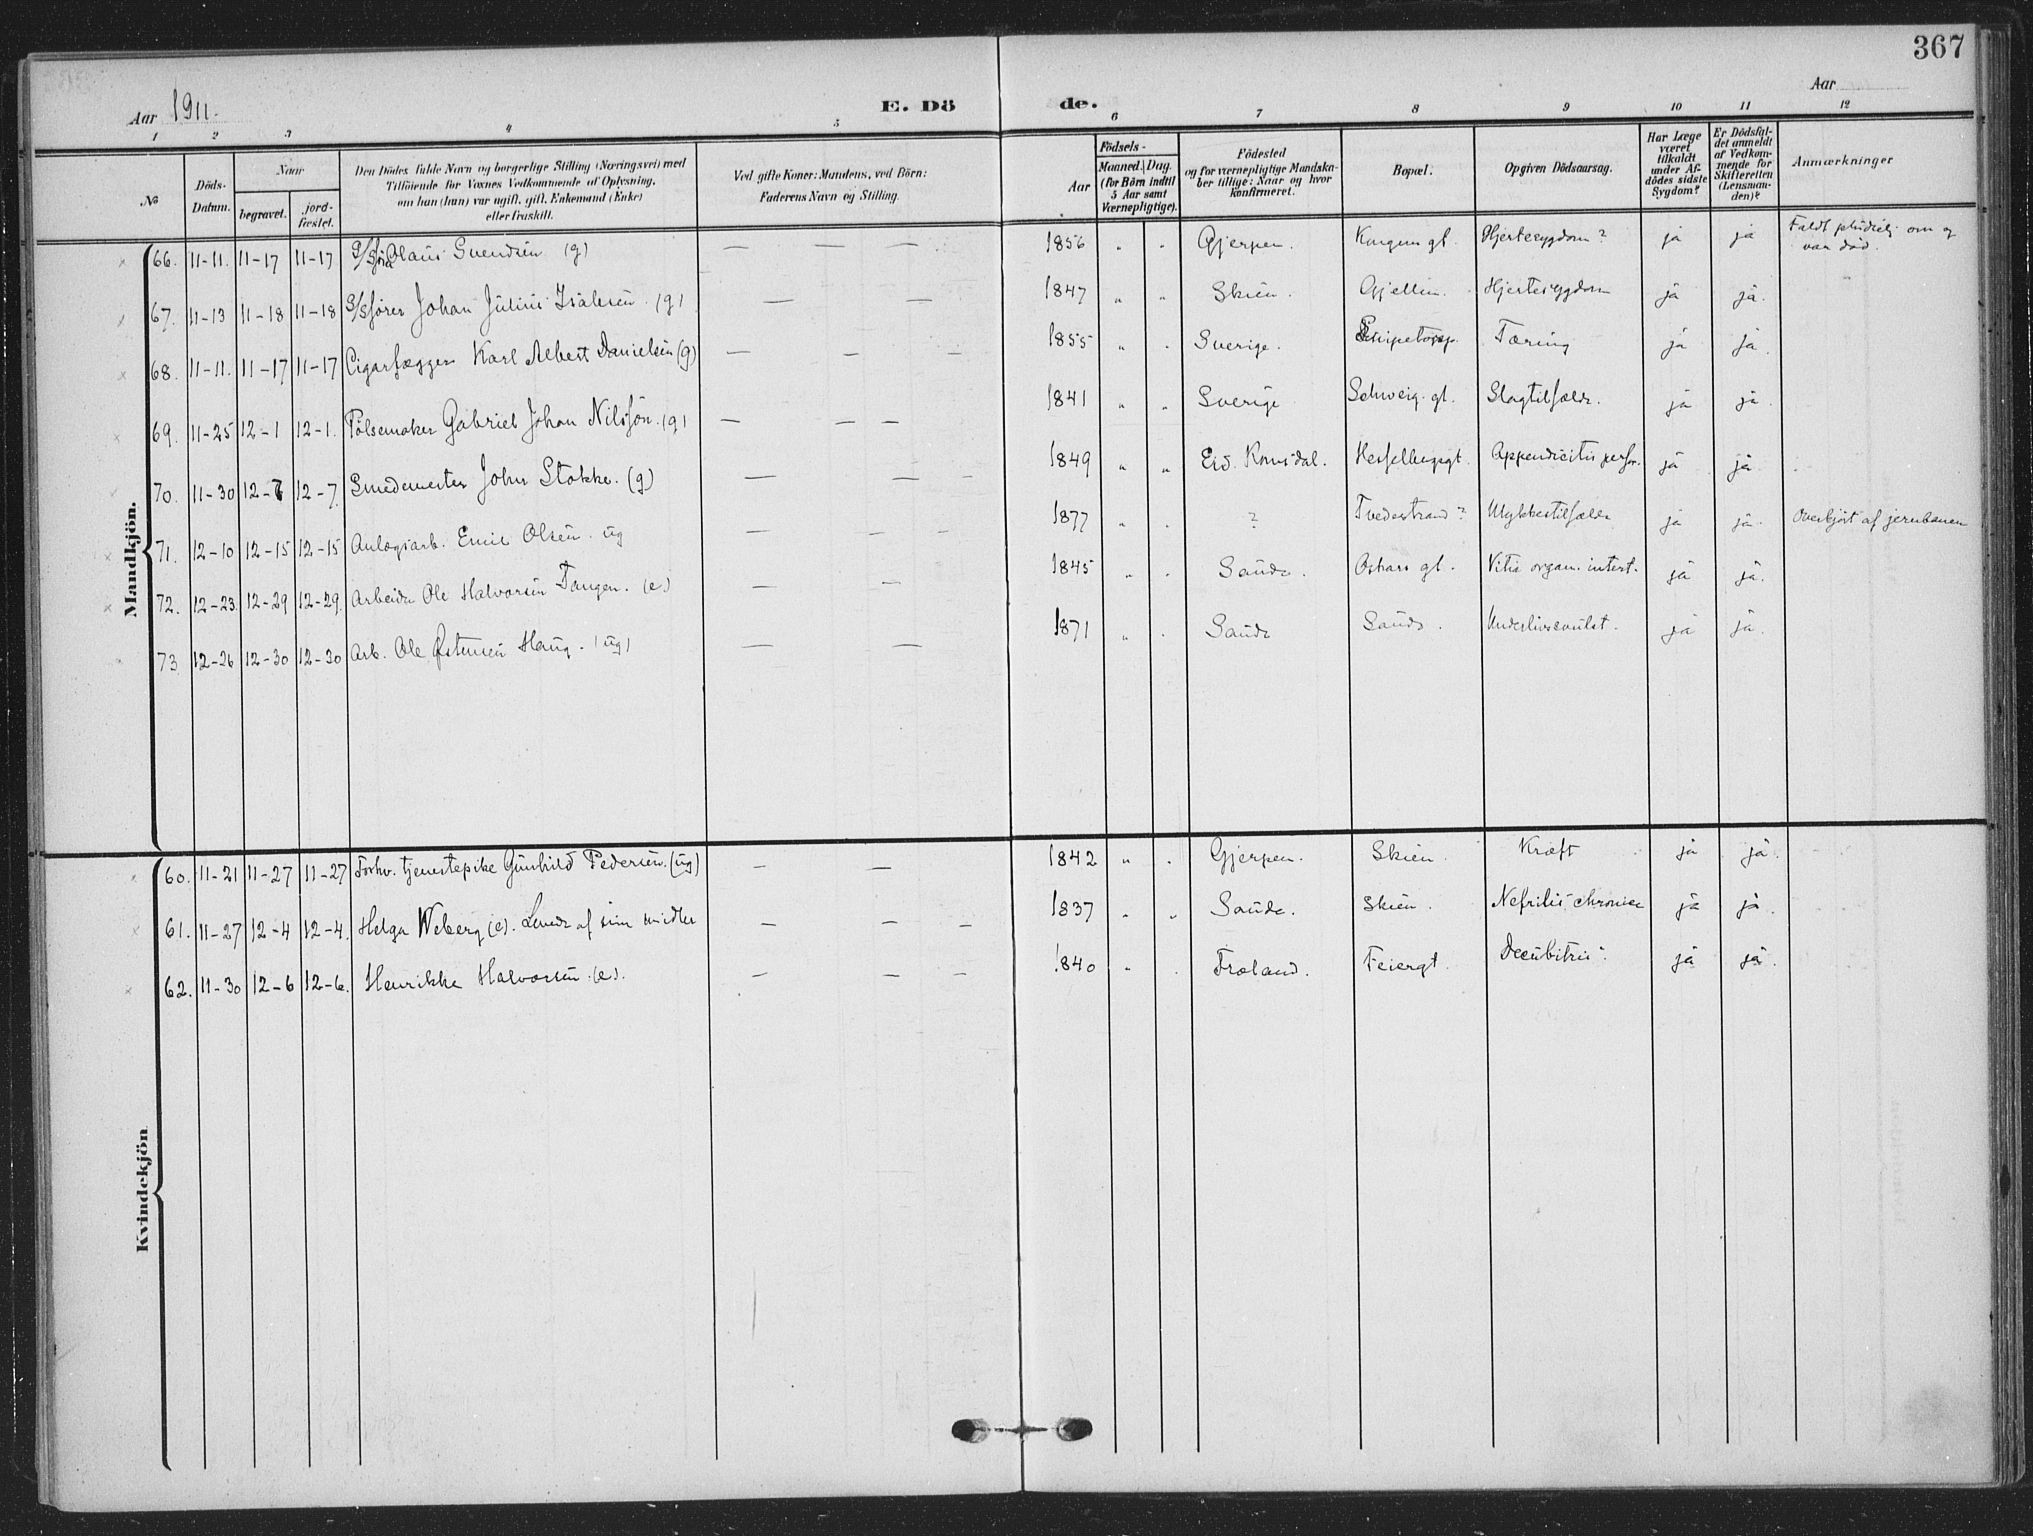 367
Aar 1911.
E. Dö de.
Aar
1 2 3 4 5 6 7 8 9 10 11 12
No
Döds-Datum.
Naar
begravet.
jord-fæstet.
Den Dödes fulde Navn og borgerlige Stilling (Næringsvei) med
Tilföiende for Voxnes Vedkommende af Oplysning,
om han (hun) var ugift, gift, Enkemand (Enke)
eller fraskilt.
Ved gifte Koner: Mandens, ved Börn:
Faderens Navn og Stilling.
Aar
Födsels-
Maaned. Dag.
(for Börn indtil
5 Aar samt
Værnepligtige).
Födested
og for værnepligtige Mandska-
ber tillige: Naar og hvor
konfirmeret.
Bopæl.
Opgiven Dödsaarsag.
Har Læge
været
tilkaldt
under Af-
dödes sidste
Sygdom?
Er Dödsfal-
det anmeldt
af Vedkom-
mende for
Skifteretten
(Lensman-
den)?
Anmærkninger
Mandkjön.
66. 11-11. 11-17 11-17 Olaus Svendsen (g) — — — 1856 " " Gjerpen. Kongens gt. Hjertesygdom? ja ja Faldt pludselig om og
var död.
67. 11-13 11-18 11-18 S/Sförer Johan Julius Isaksen (g) — — 1847 " " Skien. Gjellen. Hjertesygdom ja ja.
68. 11-11. 11-17 11-17 Cigarlægger Karl Albert Danielsen (g) — — — 1855 " " Sverige. Tæring ja ja.
69. 11-25 12-1 12-1. Pölsemaker Gabriel Johan Nilssön. (g) — — — 1841 " " Sverige Schweig. gt. Slagtilfælde. ja ja.
70. 11-30 12-7 12-7. Smedemester John Stokke. (g) — — — 1849 " " Eid. Romsdal. Hesselbergsgt. Appendicitis perfor. ja ja.
71. 12-10 12-15 12-15 Anlægsarb. Emil Olsen. ug — — — 1877 " " ? Tvedestrand? Ulykkestilfælde ja ja. Overkjört af jernbanen
72. 12-23. 12-29 12-29. Arbeider Ole Halvorsen Tangen. (e) — — 1845 " " Saude. Oskars gt. Vitia organ. intest. ja ja.
73 12-26 12-30 12-30 Arb. Ole Östensen Haug. (ug) — — 1871 " " Saude Saude. Underlivssvulst. ja ja.
Kvindekjön
60. 11-21 11-27 11-27 Forhv. tjenestepike Gunhild Pedersen. (ug) — — 1842 " " Gjerpen. Skien. Kræft ja ja.
61. 11-27 12-4 12-4. Helga Weberg (e). Levede af sine midler — — — 1837 " " Saude. Skien. Nefritis chronica ja ja.
62. 11-30 12-6 12-6. Henrikke Halvorsen. (e). — — — 1840 " " Froland. Feiergt. Decubitus. ja ja.